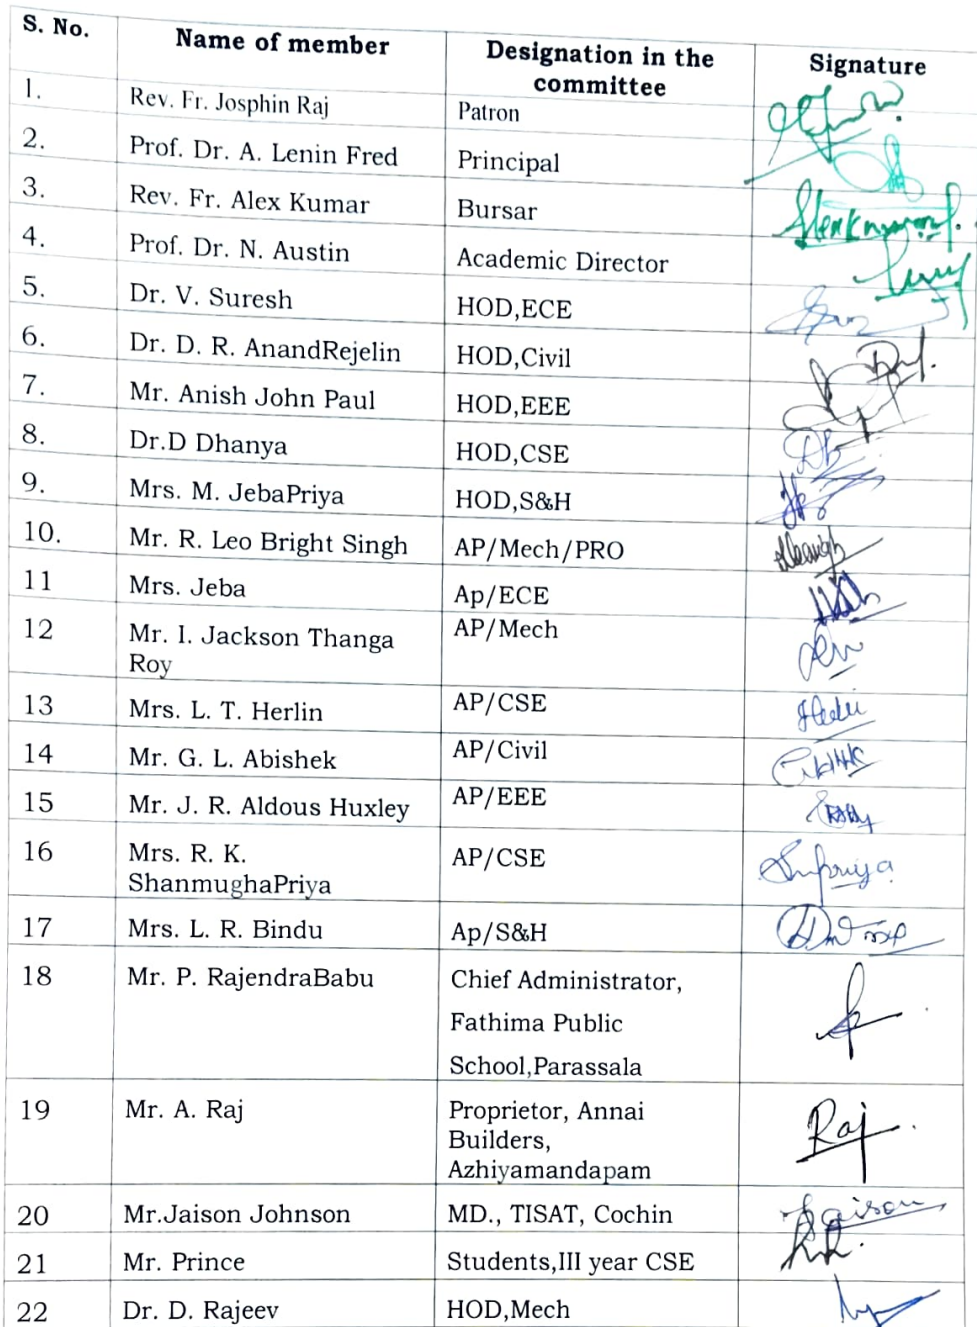 S. No. Name of member Designation in the committee Signature
1. Rev. Fr. Josphin Raj Patron
2. Prof. Dr. A. Lenin Fred Principal
3. Rev. Fr. Alex Kumar Bursar
4. Prof. Dr. N. Austin Academic Director
5. Dr. V. Suresh HOD,ECE
6. Dr. D. R. AnandRejelin HOD,Civil
7. Mr. Anish John Paul HOD,EEE
8. Dr.D Dhanya HOD,CSE
9. Mrs. M. JebaPriya HOD,S&H
10. Mr. R. Leo Bright Singh AP/Mech/PRO
11 Mrs. Jeba Ap/ECE
12 Mr. I. Jackson Thanga AP/Mech
Roy
13 Mrs. L. T. Herlin AP/CSE
14 Mr. G. L. Abishek AP/Civil
15 Mr. J. R. Aldous Huxley AP/EEE
16 Mrs. R. K. AP/CSE
ShanmughaPriya
17 Mrs. L. R. Bindu Ap/S&H
18 Mr. P. RajendraBabu Chief Administrator,
Fathima Public
School,Parassala
19 Mr. A. Raj Proprietor, Annai Raj
Builders,
Azhiyamandapam
20 Mr.Jaison Johnson MD., TISAT, Cochin Jaison
21 Mr. Prince Students,III year CSE
22 Dr. D. Rajeev HOD,Mech